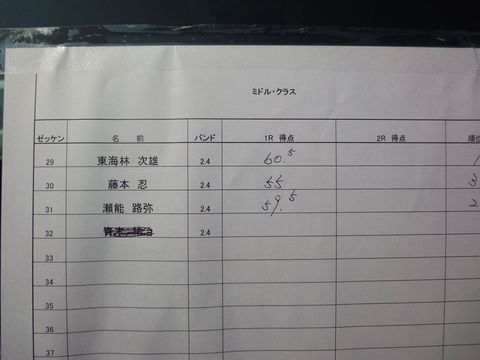 ミドル・クラス
ゼッケン 名 前 バンド 1R 得点 2R 得点 順位
29 東海林 次雄 2.4 60.5 1
30 藤本 忍 2.4 55 3
31 瀬能 路弥 2.4 59.5 2
32 2.4
33
34
35
36
37